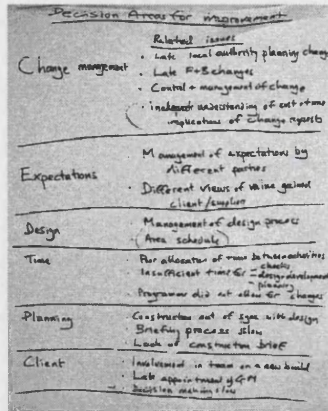 Decision Areas for improvement
Related issues
Change management
· Late local authority planning change
· Late F+B changes
· Control + management of change
· inadequate understanding of cost + time
implications of change reports
Expectations
Management of expectations by
different parties
· Different views of value gained
client/supplier
Design
· Management of design process
Area schedule
Time
· Poor allocation of time between activities
Insufficient time for - checks
- design development
- planning
· Programme did not allow for changes
Planning
· Construction out of sync with design
· Briefing process slow
· Lack of construction brief
Client
· Involvement in team on a new build
· Late appointment of GM
· Decision making slow